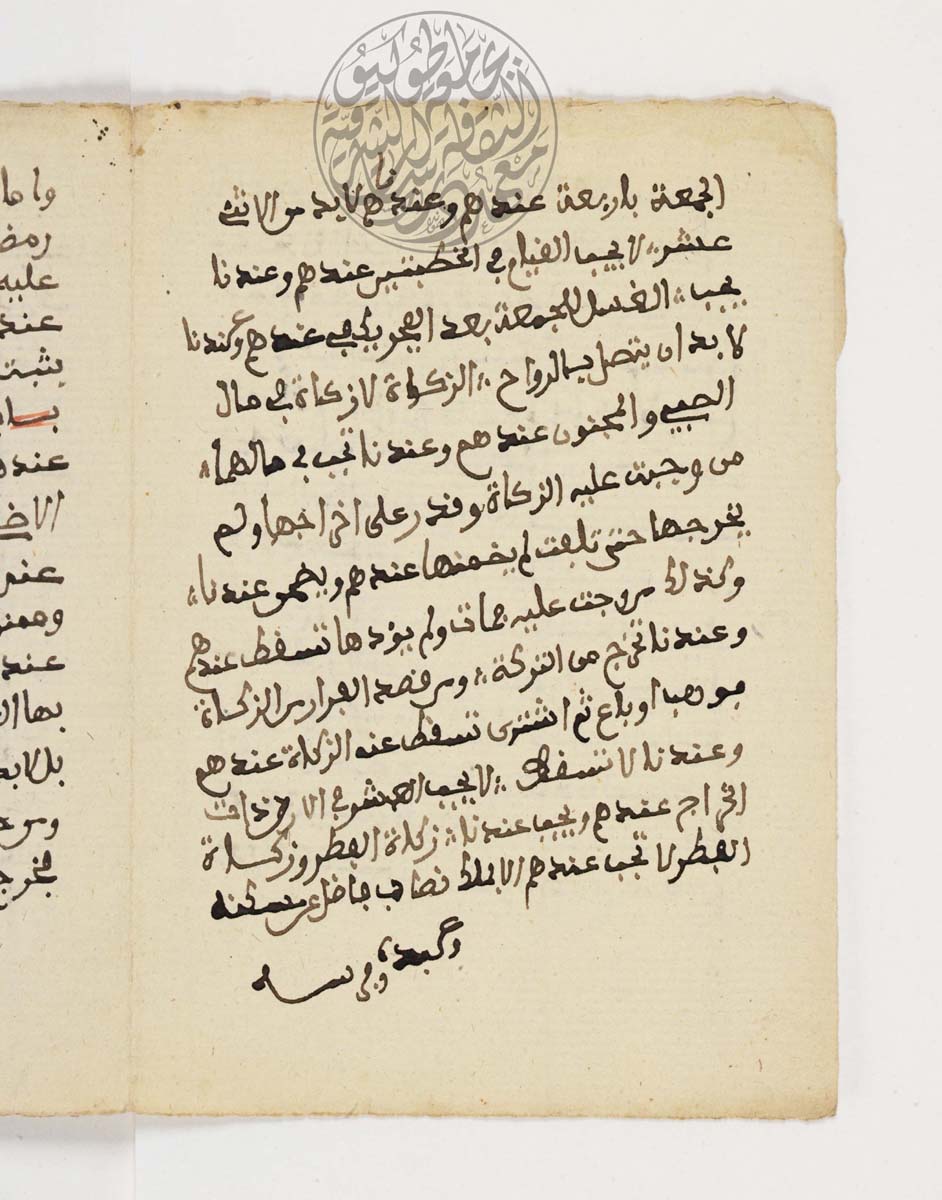 الجمعة باربعة عندهم وعندنا لابد من الاثني
عشر، لا يجب القيام في الخطبتين عندهم وعندنا
يجب، الغسل للجمعة بعد الفجر يكفي عندهم وعندنا
لا بد ان يتصل بالرواح، الزكواة لا زكاة في مال
الصبي والمجنون عندهم وعندنا تجب في مالهما،
من وجبت عليه الزكاة وقدر على اخراجها ولم
يخرجها حتى تلفت لم يضمنها عندهم ويضمن عندنا،
وكذلك من وجبت عليه فمات ولم يؤدها تسقط عندهم
وعندنا تخرج من التركة، ومن قصد الفرار من الزكاة
فوهب او باع ثم اشترى تسقط عنه الزكاة عندهم
وعندنا لا تسقط، لا يجب العشر في الارضات
الخراج عندهم ويجب عندنا، زكاة الفطر وزكاة
الفطر لا تجب عندهم الا بملك نصاب فاضل عن مسكنه
وعبده وفرسه
معهد الثقافة والدراسات الشرقية
جامعة طوكيو
واما
رمضا
عليه
عند
يثبت
عنده
الاض
عند
بها ال
بل لابد